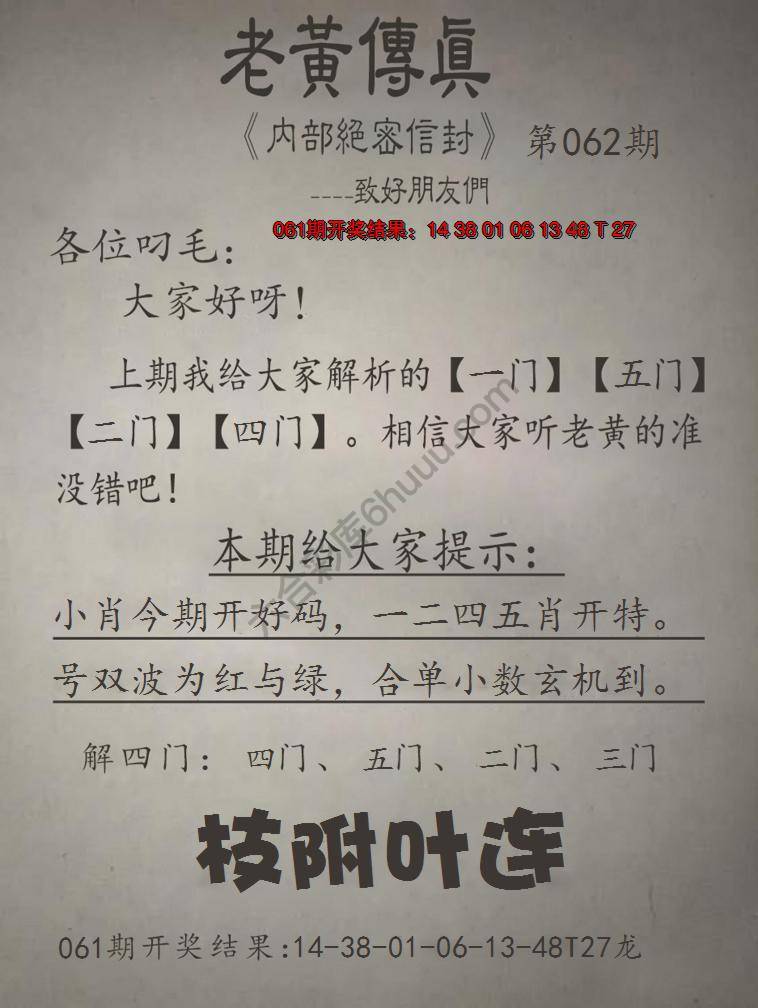 老黃傳眞
《内部絕密信封》 第062期
----致好朋友們
061期开奖结果：14 38 01 06 13 48 T 27
各位叼毛：
大家好呀！
上期我给大家解析的【一门】【五门】
【二门】【四门】。相信大家听老黄的准
没错吧！
本期给大家提示：
小肖今期开好码，一二四五肖开特。
号双波为红与绿，合单小数玄机到。
解四门： 四门、 五门、 二门、 三门
枝附叶连
061期开奖结果:14-38-01-06-13-48T27龙
六合彩库6huuu.com